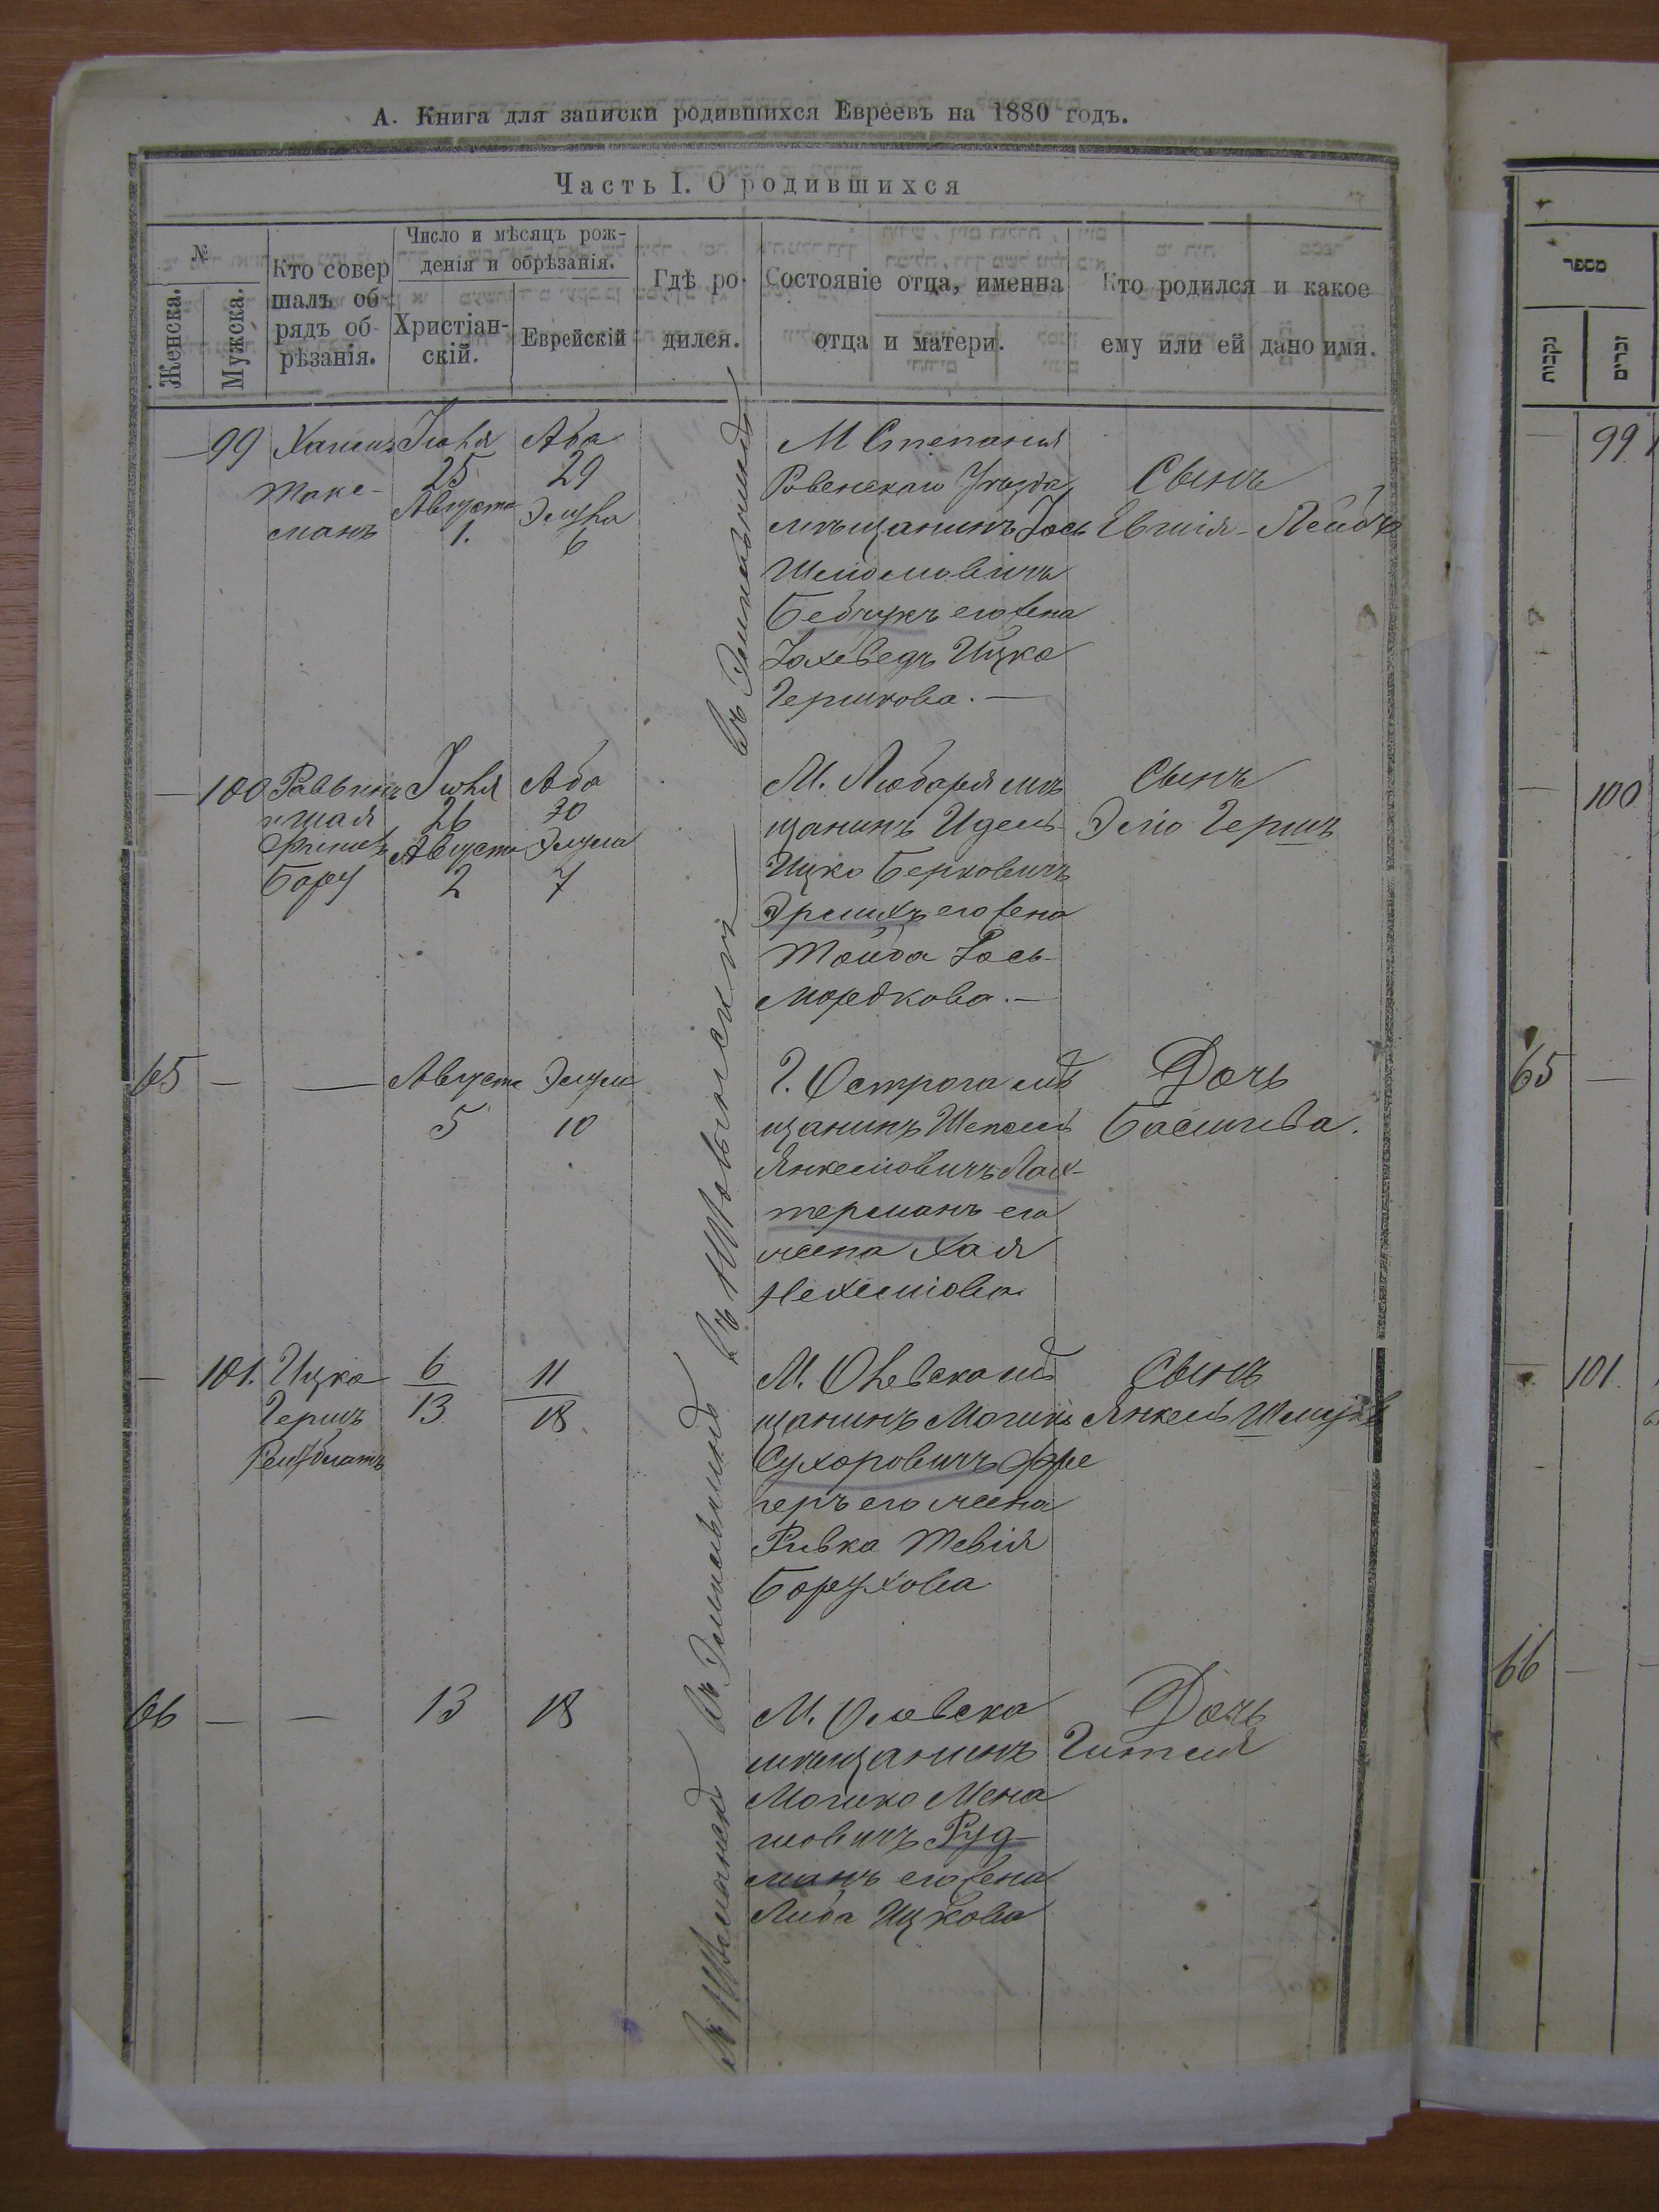 А. Книга для записки родившихся Евреевъ на 1880 годъ.
Часть I. О родившихся
№
Женска.
Мужска.
Кто совер
шалъ об
рядъ об-
рѣзанія.
Число и мѣсяцъ рож-
денія и обрѣзанія.
Христіан-
скій.
Еврейскій
Гдѣ ро-
дился.
Состояніе отца, именна
отца и матери.
Кто родился и какое
ему или ей дано имя.
— 99
Макс-
манъ
Іюля
25
Августа
1.
Аба
29
Элула
6
М Степаня
Ровенскаго Уѣзда
мѣщанинъ Іось
Шлиомовичъ
Бебчукъ его жена
Іохеведъ Ицко
Гершкова. —
Сынъ
Евшія - Лейбъ
— 100
Раввинъ
Бору
Іюля
26
Августа
2
Аба
30
Элула
7
М. Любаря мѣ
щанинъ Идель
Ицко Берковичъ
Эрлихъ его жена
Тойба Іось
Мордкова. —
Сынъ
Элio Гершъ
65 — —
Августа
5
Элула
10
Г. Острога мѣ
щанинъ Шепсель
Янкелiовичъ Лах-
терманъ его
жена Хая
Нехемiова
Дочь
Басшева.
— 101.
Ицко
Гершъ
6
13
11
18
М. Олевска мѣ
щанинъ Мошко
Сухоровичъ
геръ его жена
Ривка Тевія
Борухова
Сынъ
Янкель
66 — —
13
18
М. Олевска
мѣщанинъ
Мошко Мена
шовичъ Руд-
манъ его жена
Либа Ицкова
Дочь
Гитля
въ Эмильчинѣ
въ Эмильчинѣ
מספר
נקבות
זכרים
— 99
— 100
65 —
— 101
66 —